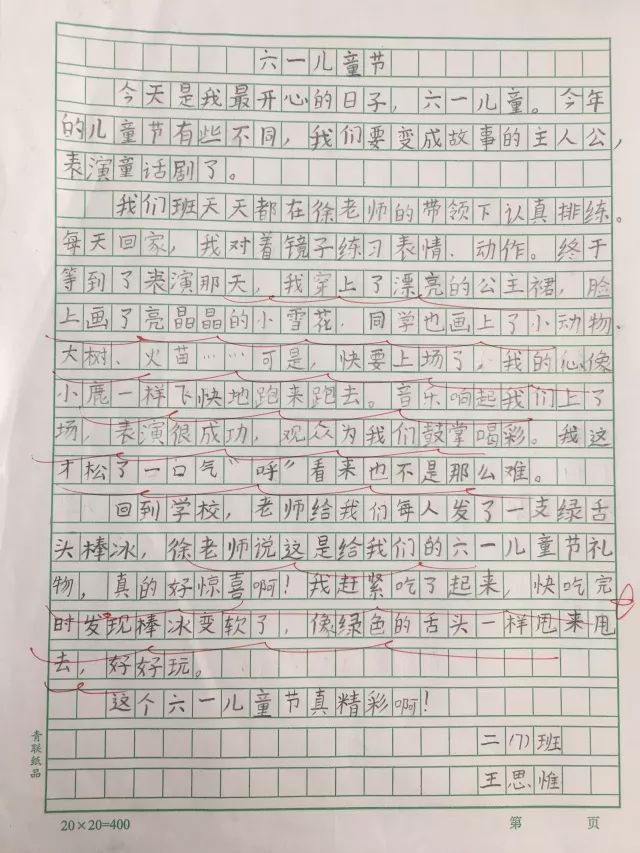 六一儿童节
今天是我最开心的日子，六一儿童。今年
的儿童节有些不同，我们要变成故事的主人公，
表演童话剧了。
我们班天天都在徐老师的带领下认真排练。
每天回家，我对着镜子练习表情、动作。终于
等到了表演那天，我穿上了漂亮的公主裙，脸
上画了亮晶晶的小雪花，同学也画上了小动物、
大树、火苗……可是，快要上场了，我的心像
小鹿一样飞快地跑来跑去。音乐响起我们上了
场，表演很成功，观众为我们鼓掌喝彩。我这
才松了一口气“呼”看来也不是那么难。
回到学校，老师给我们每人发了一支绿舌
头棒冰，徐老师说这是给我们的六一儿童节礼
物，真的好惊喜啊！我赶紧吃了起来，快吃完
时发现棒冰变软了，像绿色的舌头一样甩来甩
去，好好玩。
这个六一儿童节真精彩啊！
二(7)班
王思惟
青联纸品
20×20=400 第 页